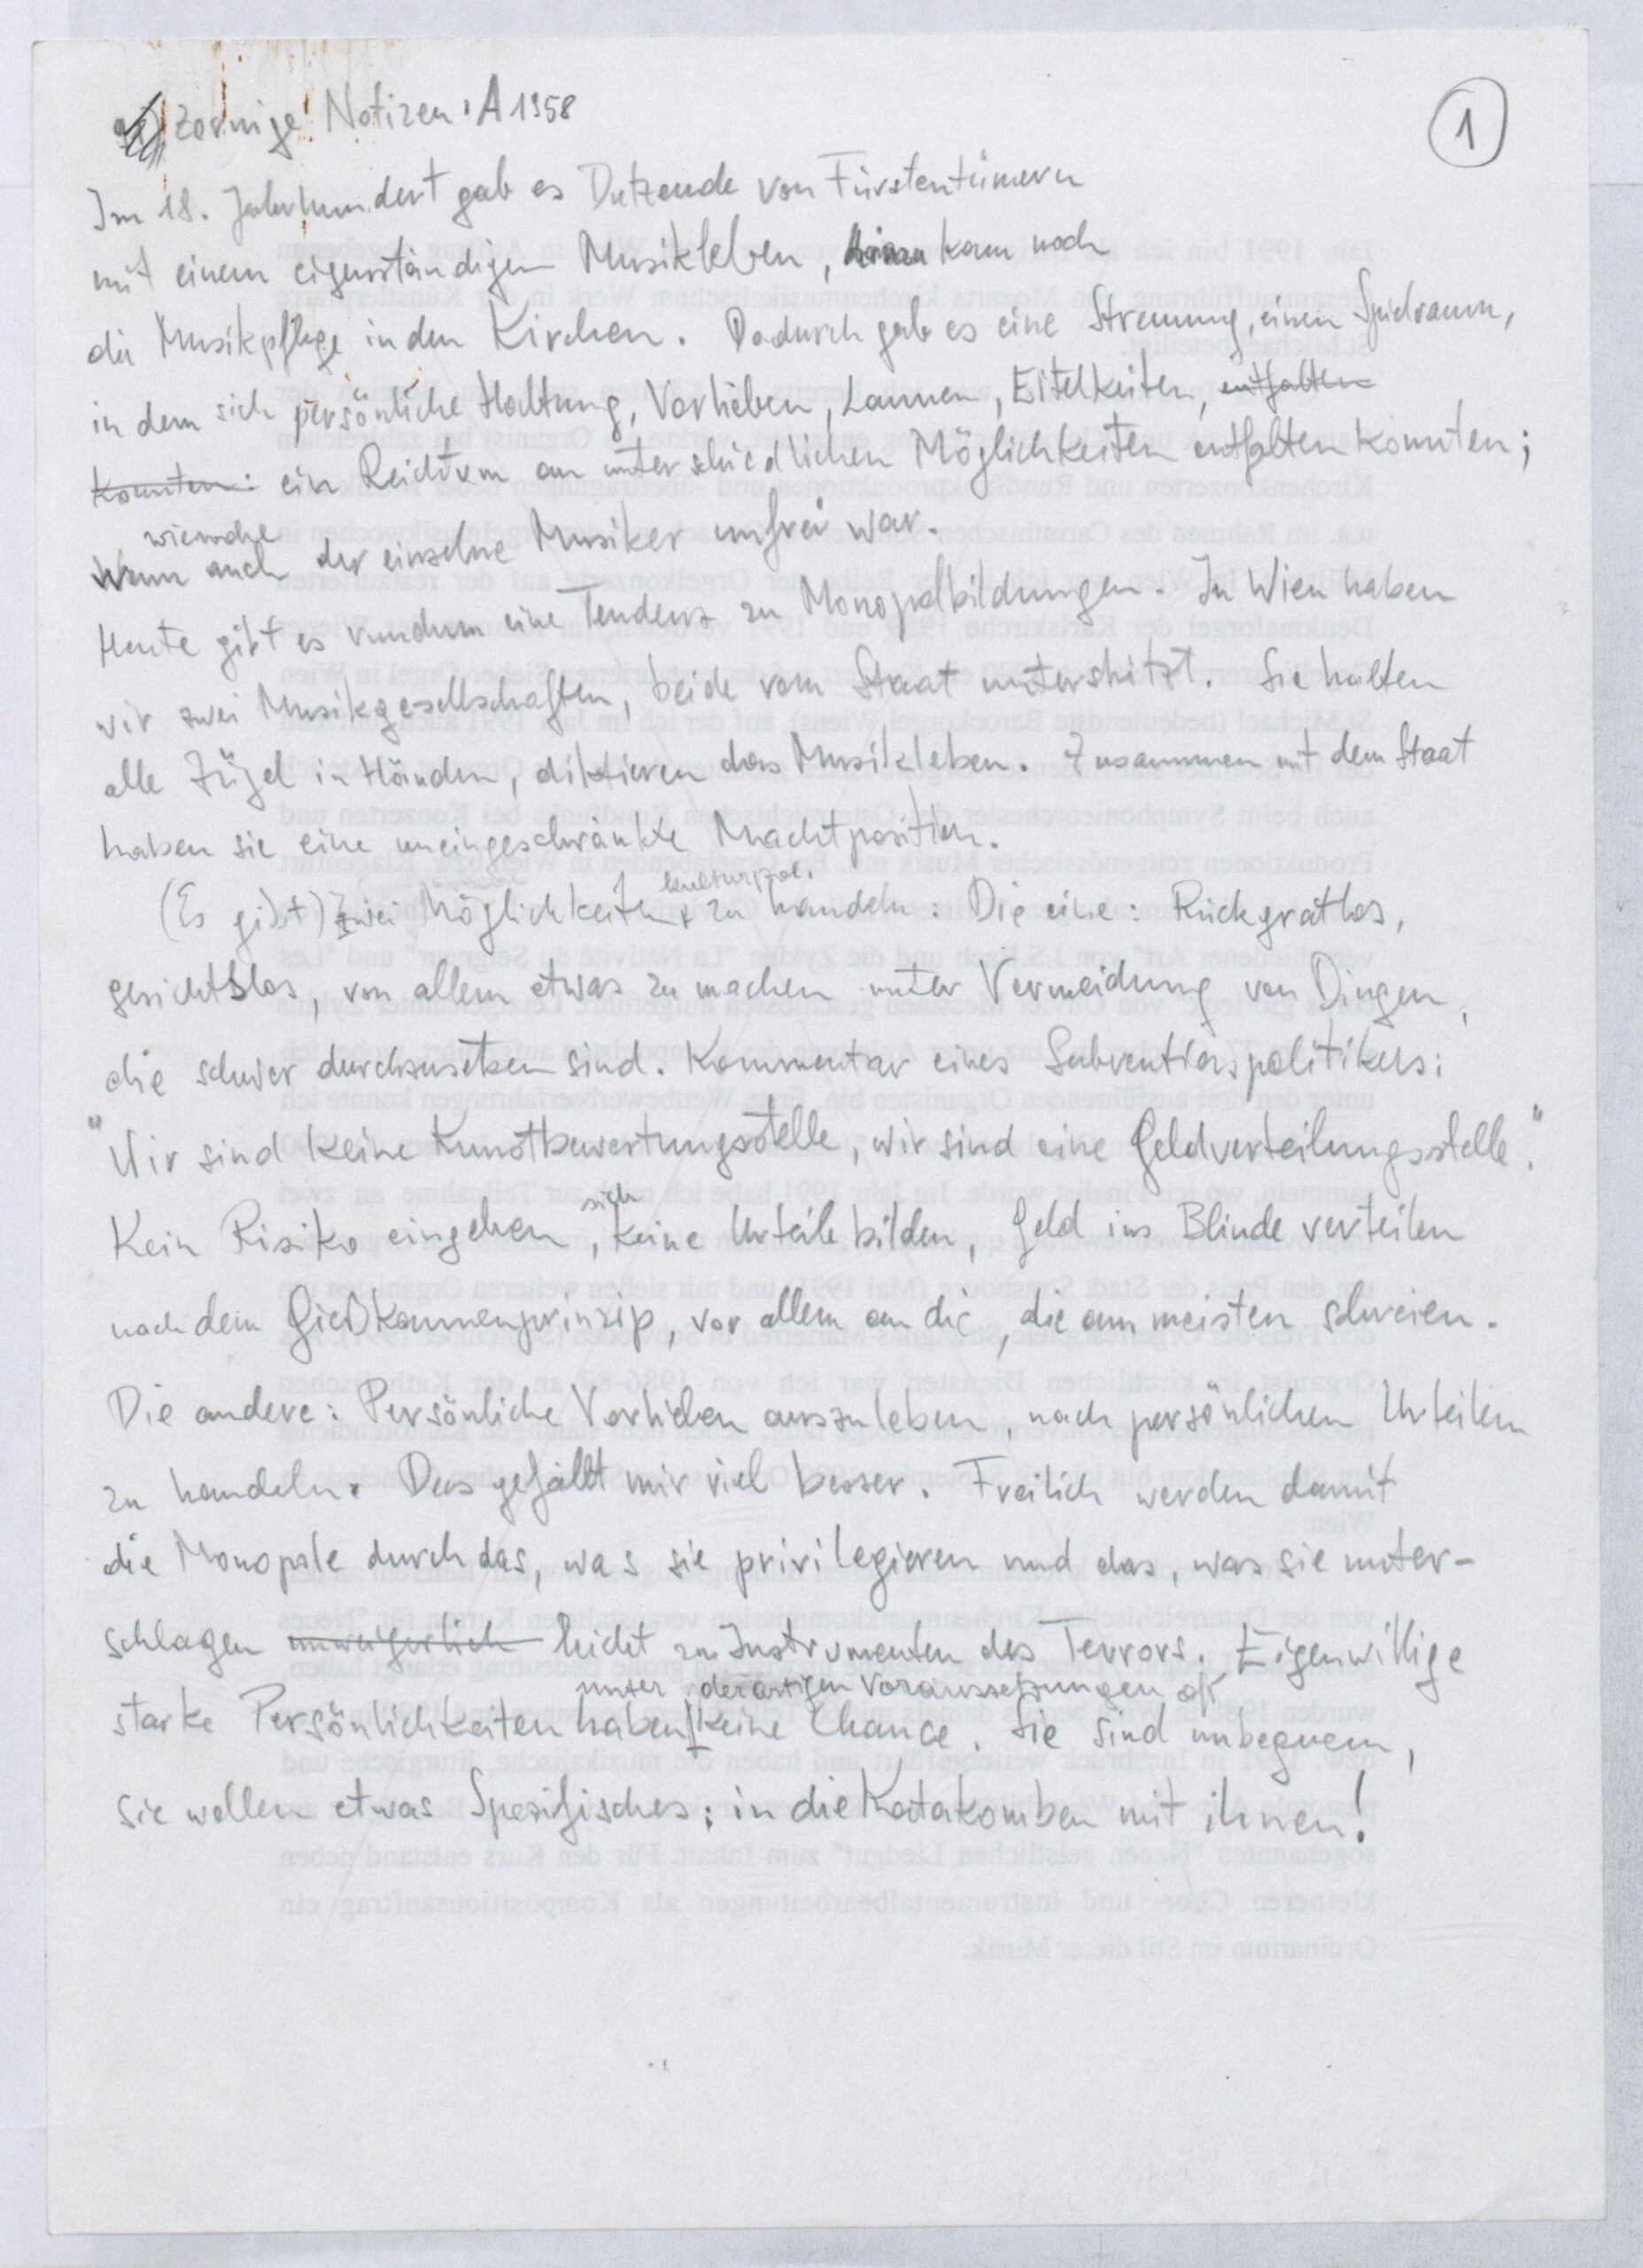 zornige Notizen: A 1958
1
Im 18. Jahrhundert gab es Dutzende von Fürstentümern
mit einem eigenständigen Musikleben, hinzu kam noch
die Musikpflege in den Kirchen. Dadurch gab es eine Streuung, einen Spielraum,
in dem sich persönliche Haltung, Vorlieben, Launen, Eitelkeiten, entfalten
konnten: ein Reichtum an unterschiedlichen Möglichkeiten entfalten konnten;
wiewohl
Wenn auch der einzelne Musiker unfrei war.
Heute gibt es rundum eine Tendenz zu Monopolbildungen. In Wien haben
wir zwei Musikgesellschaften, beide vom Staat unterstützt. Sie halten
alle Zügel in Händen, diktieren das Musikleben. Zusammen mit dem Staat
haben sie eine uneingeschränkte Machtposition.
kulturpol.
(Es gibt) Zwei Möglichkeiten zu handeln: Die eine: Rückgratlos,
gesichtslos, von allem etwas zu machen unter Vermeidung von Dingen,
die schwer durchzusetzen sind. Kommentar eines Subventionspolitikers:
"Wir sind keine Kunstbewertungsstelle, wir sind eine Geldverteilungsstelle."
sich
Kein Risiko eingehen, keine Urteile bilden, Geld ins Blinde verteilen
nach dem Gießkannenprinzip, vor allem an die, die am meisten schreien.
Die andere: Persönliche Vorlieben auszuleben, nach persönlichen Urteilen
zu handeln. Das gefällt mir viel besser. Freilich werden damit
die Monopole durch das, was sie privilegieren und das, was sie unter-
schlagen unweigerlich leicht zu Instrumenten des Terrors. Eigenwillige
unter derartigen Voraussetzungen oft
starke Persönlichkeiten haben keine Chance. Sie sind unbequem,
sie wollen etwas Spezifisches: in die Katakomben mit ihnen!